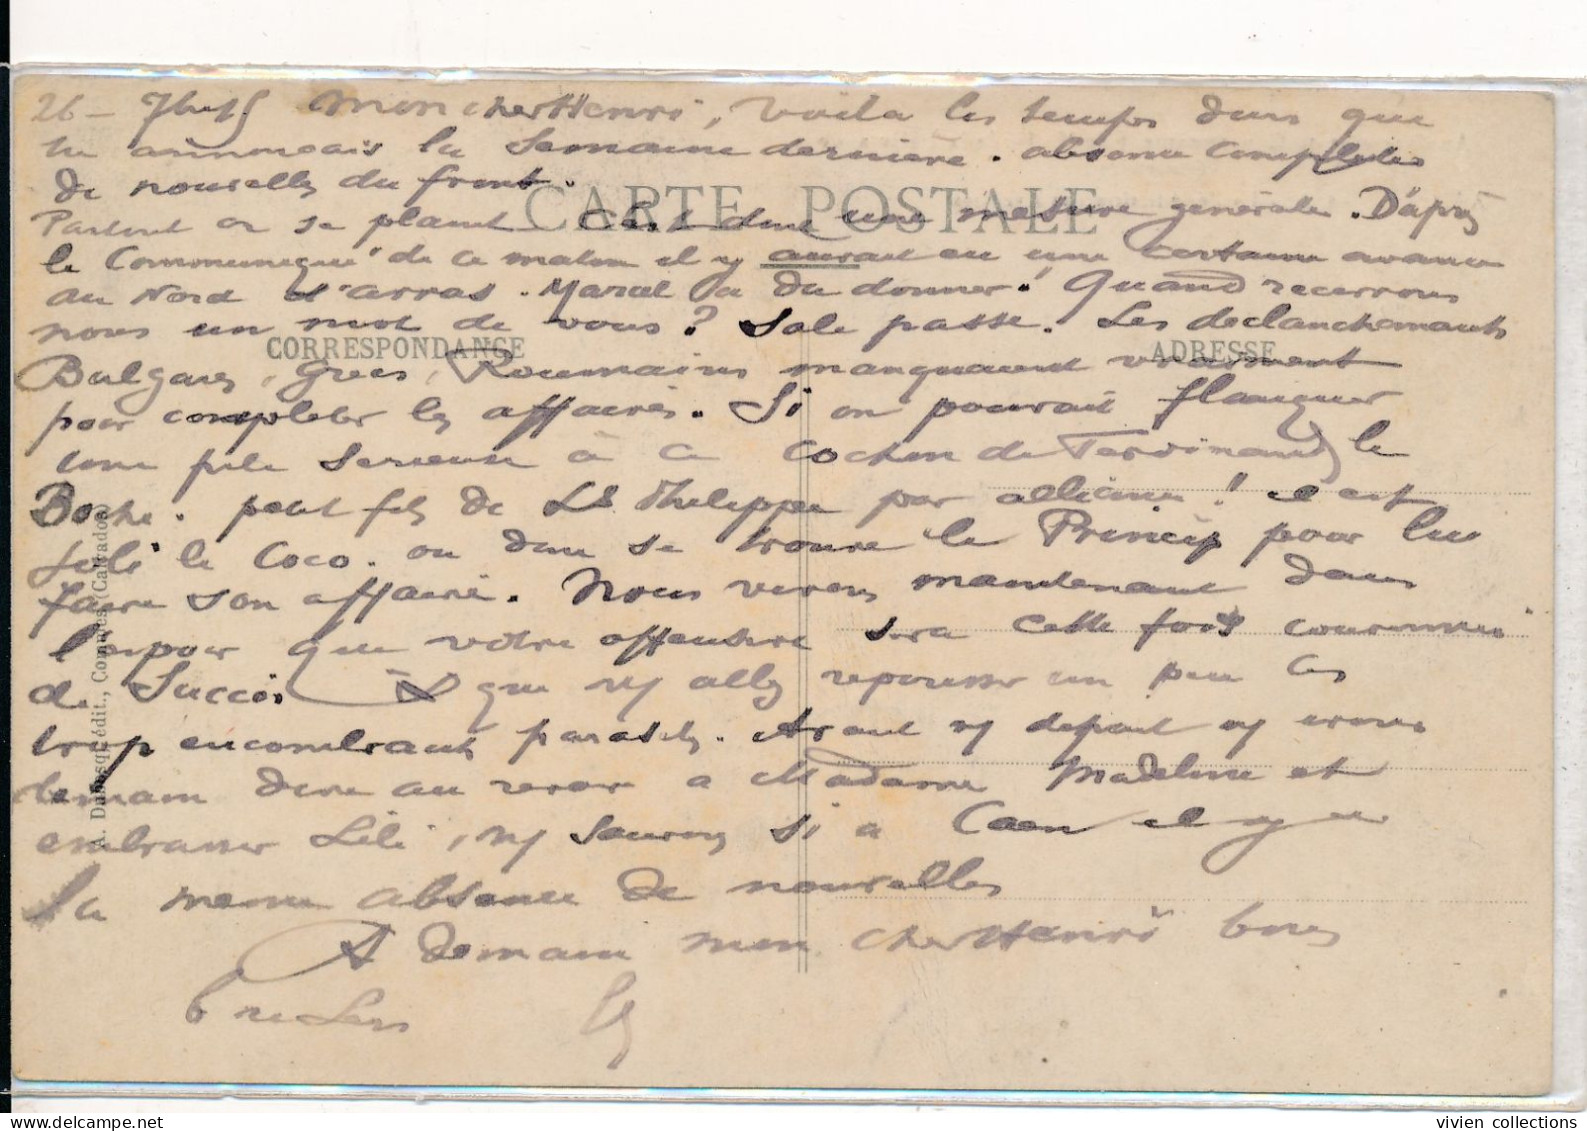 26 - Mon cher Henri, voila les temps durs que
tu annonçais la Semaine dernière. absence complète
de nouvelles du front.
CARTE POSTALE
Partout on se plaint C'est donc une mesure générale. D'après
le Communiqué de ce matin il y aurait eu une certaine avance
au Nord d'arras. Marcel a du donner! Quand recevrons
nous un mot de vous? Sale passe. Les declanchements
CORRESPONDANCE
ADRESSE
Bulgares, Grecs, Roumains manquaient vraiment
pour completer les affaires. Si on pouvait flanquer
une pile serieuse à ce Cochon de Ferdinand le
Boche. petit fils de Ls Philippe par alliance! il est
joli le Coco. ou donc se trouve le Princip pour lui
faire son affaire. Nous vivons maintenant dans
l'espoir que votre offensive sera cette fois couronnée
de Succès & que vs allez repousser un peu ces
trop encombrants parasites. Avant vs depart vs irons
demain dire au revoir a Madame Madeline et
embrasser Lili, ns saurons si a Caen il y a
la meme absence de nouvelles
A Demain mon cher Henri bons
baisers
A. Dubosq, édit., Combes (Calvados)
vivien collections